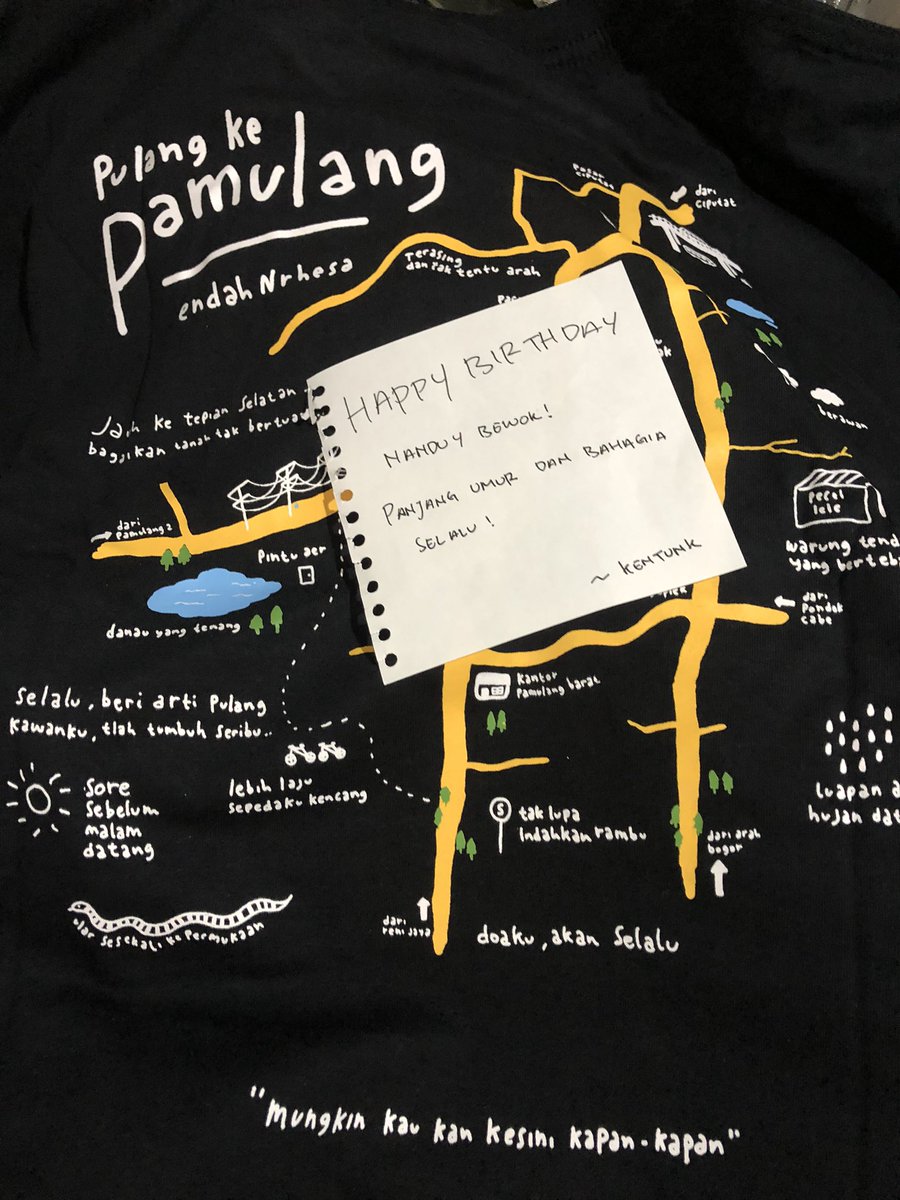 Pulang ke
Pamulang
endah Nrhesa
Pasar
ciputat
dari
ciputat
Terasing
dan tak tentu arah
HAPPY BIRTHDAY
NANDUY BEWOK!
PANJANG UMUR DAN BAHAGIA
SELALU!
~ KENTUNK
Jauh ke tepian selatan
bagaikan tanah tak bertuan
awan
pecel
lele
warung tenda
yang berteb
dari
Pondok
cabe
dari
Pamulang 2
Pintu aer
danau yang tenang
Kantor
Pamulang barat
Selalu, beri arti pulang
kawanku, tlah tumbuh seribu..
lebih laju
sepedaku kencang
Sore
Sebelum
malam
datang
tak lupa
Indahkan rambu
S
luapan a
hujan dat
dari arah
bogor
ular sesekali ke permukaan
dari
reni jaya
doaku, akan selalu
"mungkin kau kan kesini kapan-kapan"